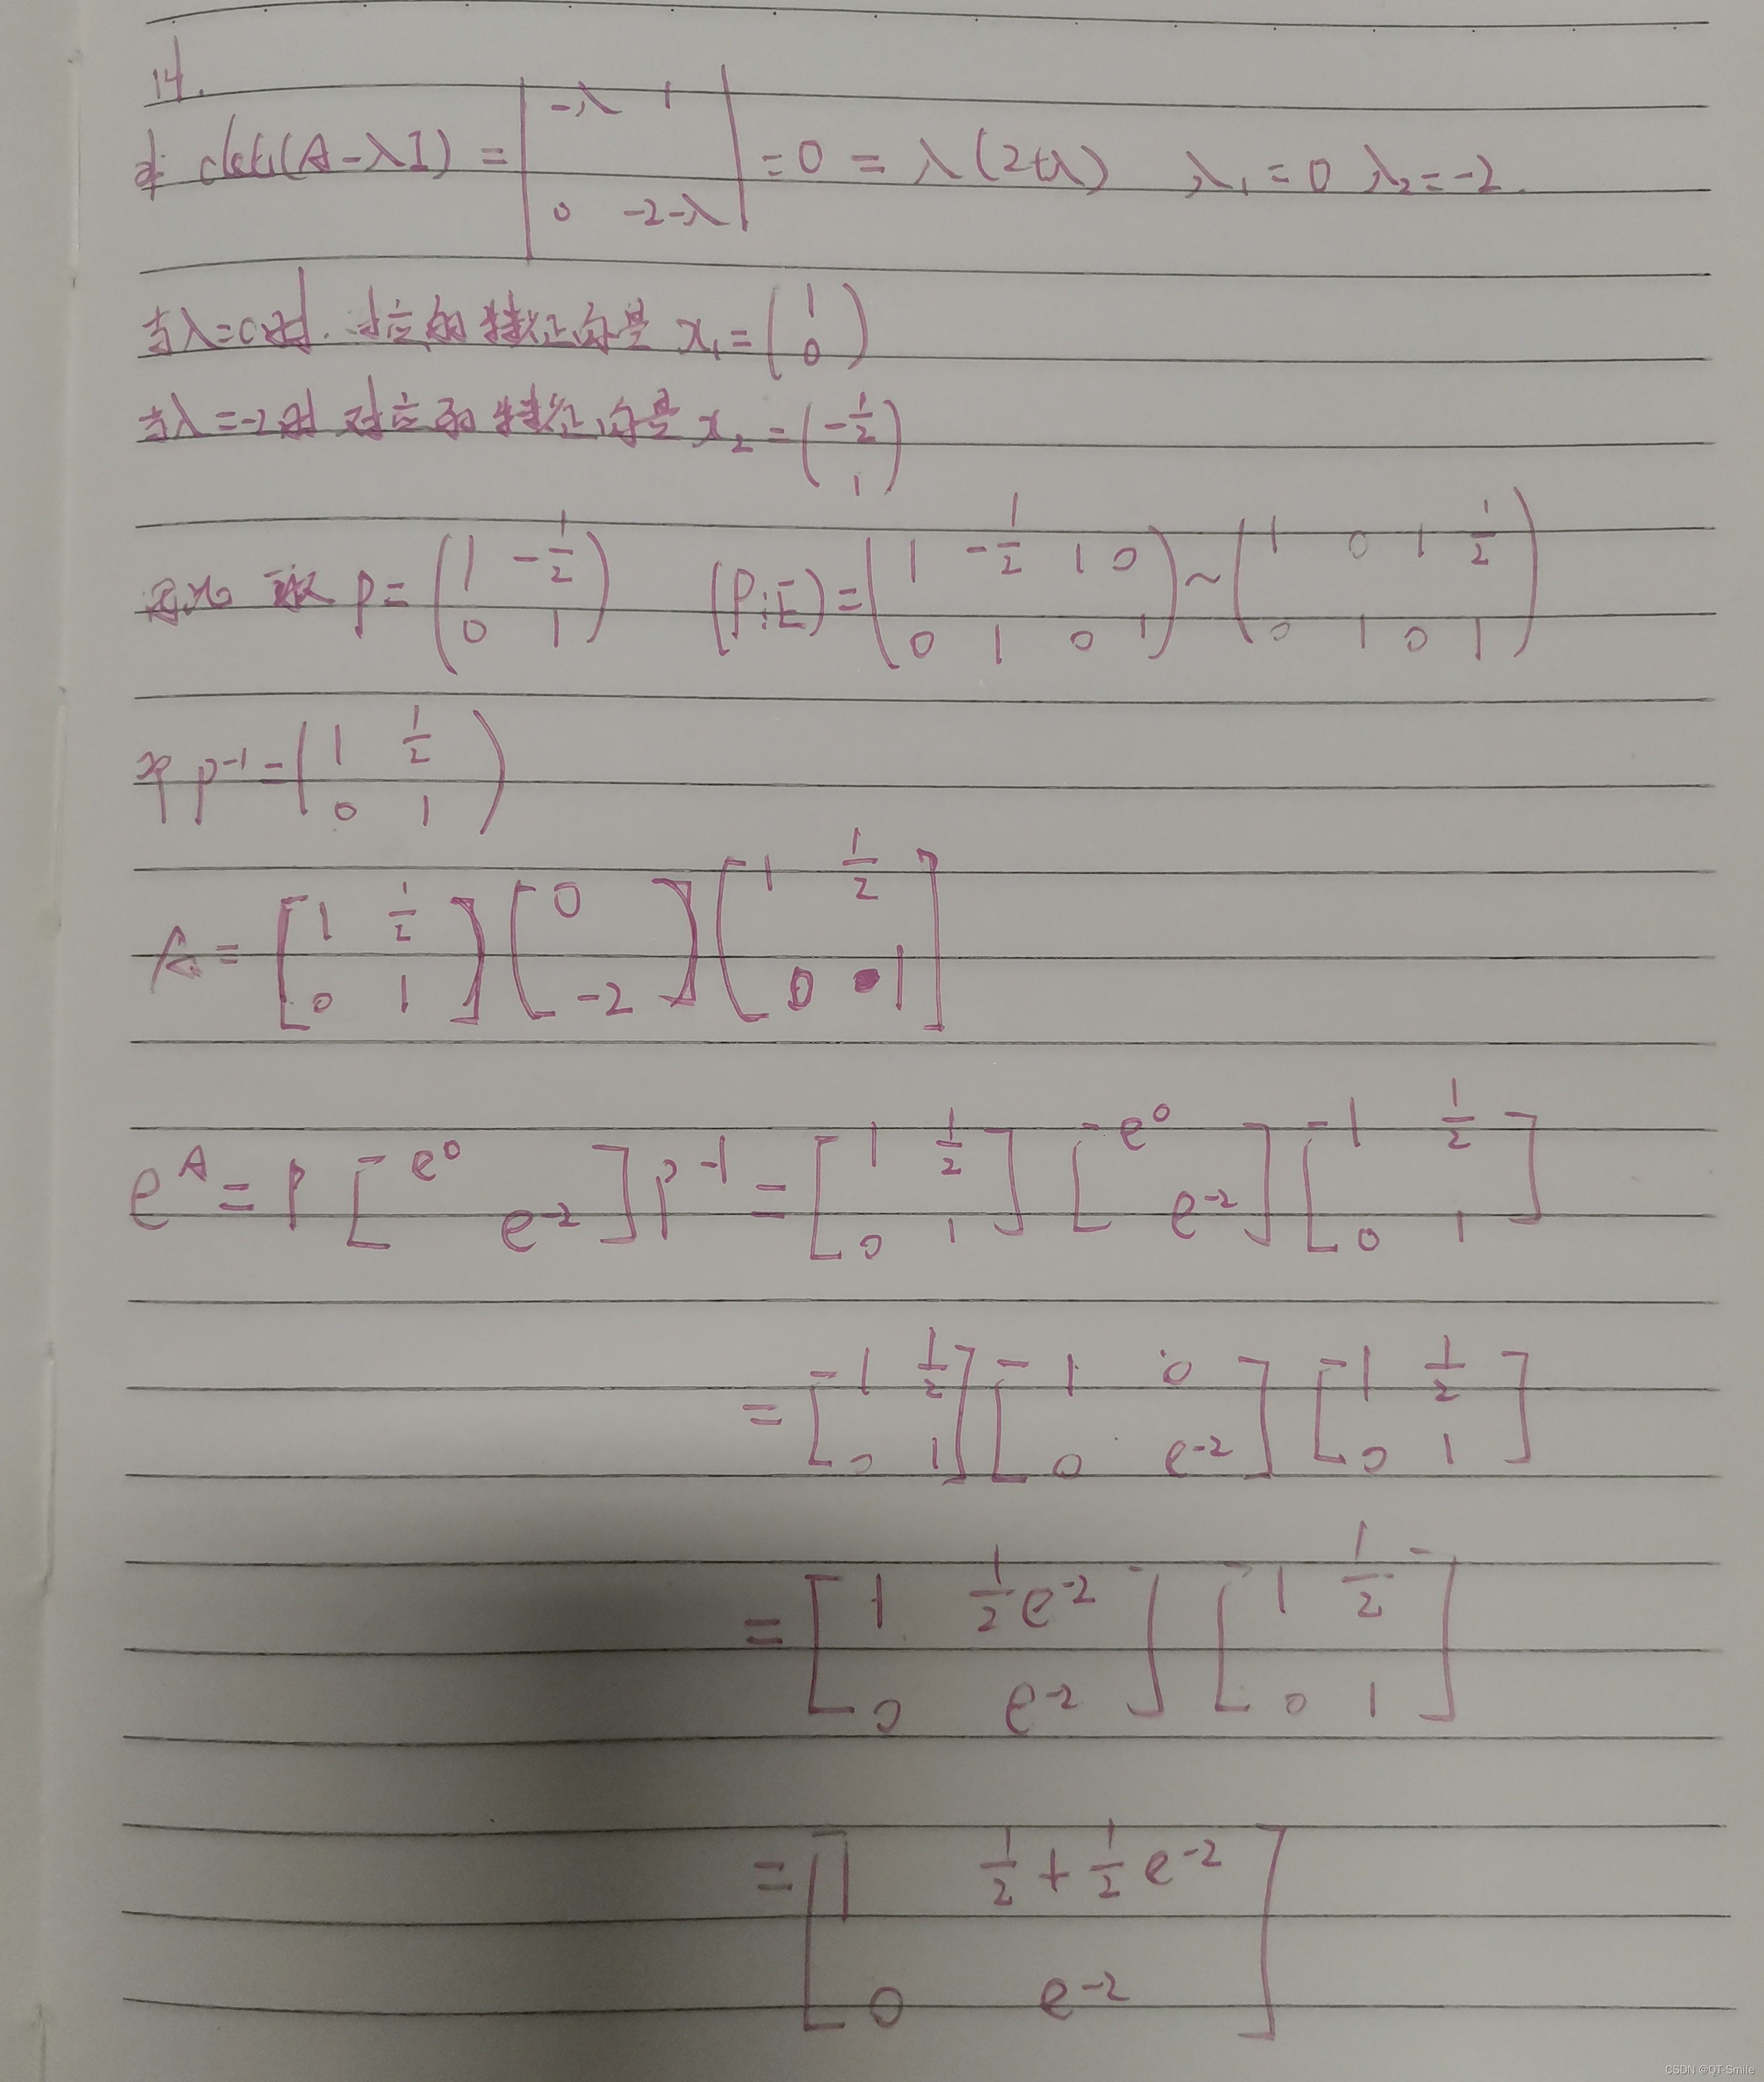 14.
det(A-λI) = | -λ 1 ; 0 -2-λ | = 0 = λ(2+λ) λ₁=0 λ₂=-2.
当λ=0时. 对应的特征向量 x₁ = ( 1 ; 0 )
当λ=-2时 对应的特征向量 x₂ = ( -1/2 ; 1 )
因此 取 P = ( 1 -1/2 ; 0 1 ) (P⋮E) = ( 1 -1/2 1 0 ; 0 1 0 1 ) ~ ( 1 0 1 1/2 ; 0 1 0 1 )
P⁻¹ = ( 1 1/2 ; 0 1 )
A = [ 1 1/2 ; 0 1 ] [ 0 ; -2 ] [ 1 1/2 ; 0 1 ]
e^A = P [ e⁰ ; e⁻² ] P⁻¹ = [ 1 1/2 ; 0 1 ] [ e⁰ ; e⁻² ] [ 1 1/2 ; 0 1 ]
= [ 1 1/2 ; 0 1 ] [ 1 0 ; 0 e⁻² ] [ 1 1/2 ; 0 1 ]
= [ 1 1/2 e⁻² ; 0 e⁻² ] [ 1 1/2 ; 0 1 ]
= [ 1 1/2 + 1/2 e⁻² ; 0 e⁻² ]
CSDN @QT-Smile